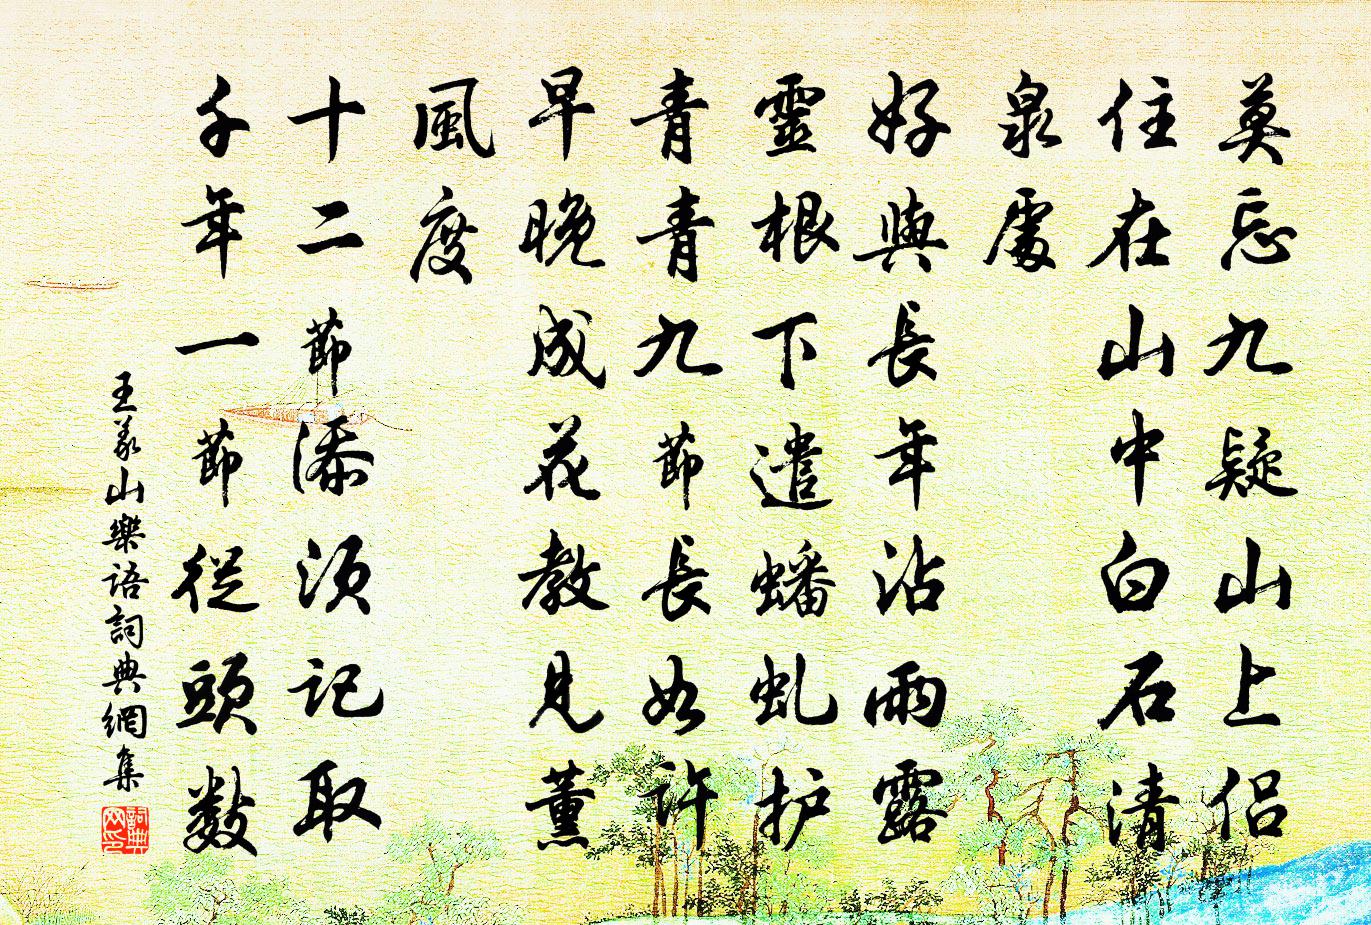 莫忘九疑山上侣
住在山中白石清
泉處
好與長年沾雨露
靈根下遣蟠虬护
青青九節長如许
早晚成花教見薰
風度
十二節添须记取
千年一節從頭數
王義山樂语詞典網集
詞典网印